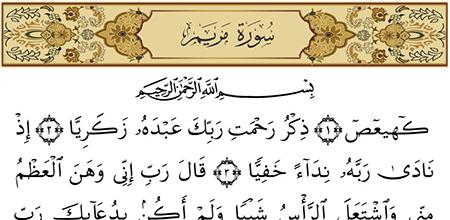 سُورَةُ مَرْيَمَ
بِسْمِ ٱللَّهِ ٱلرَّحْمَٰنِ ٱلرَّحِيمِ
كٓهيعٓصٓ ﴿١﴾ ذِكْرُ رَحْمَتِ رَبِّكَ عَبْدَهُۥ زَكَرِيَّآ ﴿٢﴾ إِذْ
نَادَىٰ رَبَّهُۥ نِدَآءً خَفِيًّا ﴿٣﴾ قَالَ رَبِّ إِنِّى وَهَنَ ٱلْعَظْمُ
مِنِّى وَٱشْتَعَلَ ٱلرَّأْسُ شَيْبًا وَلَمْ أَكُنۢ بِدُعَآئِكَ رَبِّ